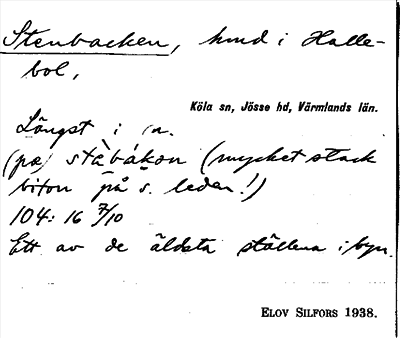 Stenbacken, hmd i Halle-
bol,
Köla sn, Jösse hd, Värmlands län.
Längst i
(pæ) stèbákon (mycket stack
på s. leden!)
104: 16 7/10
Ett av de äldsta ställena i byn.
ELOV SILFORS 1938.